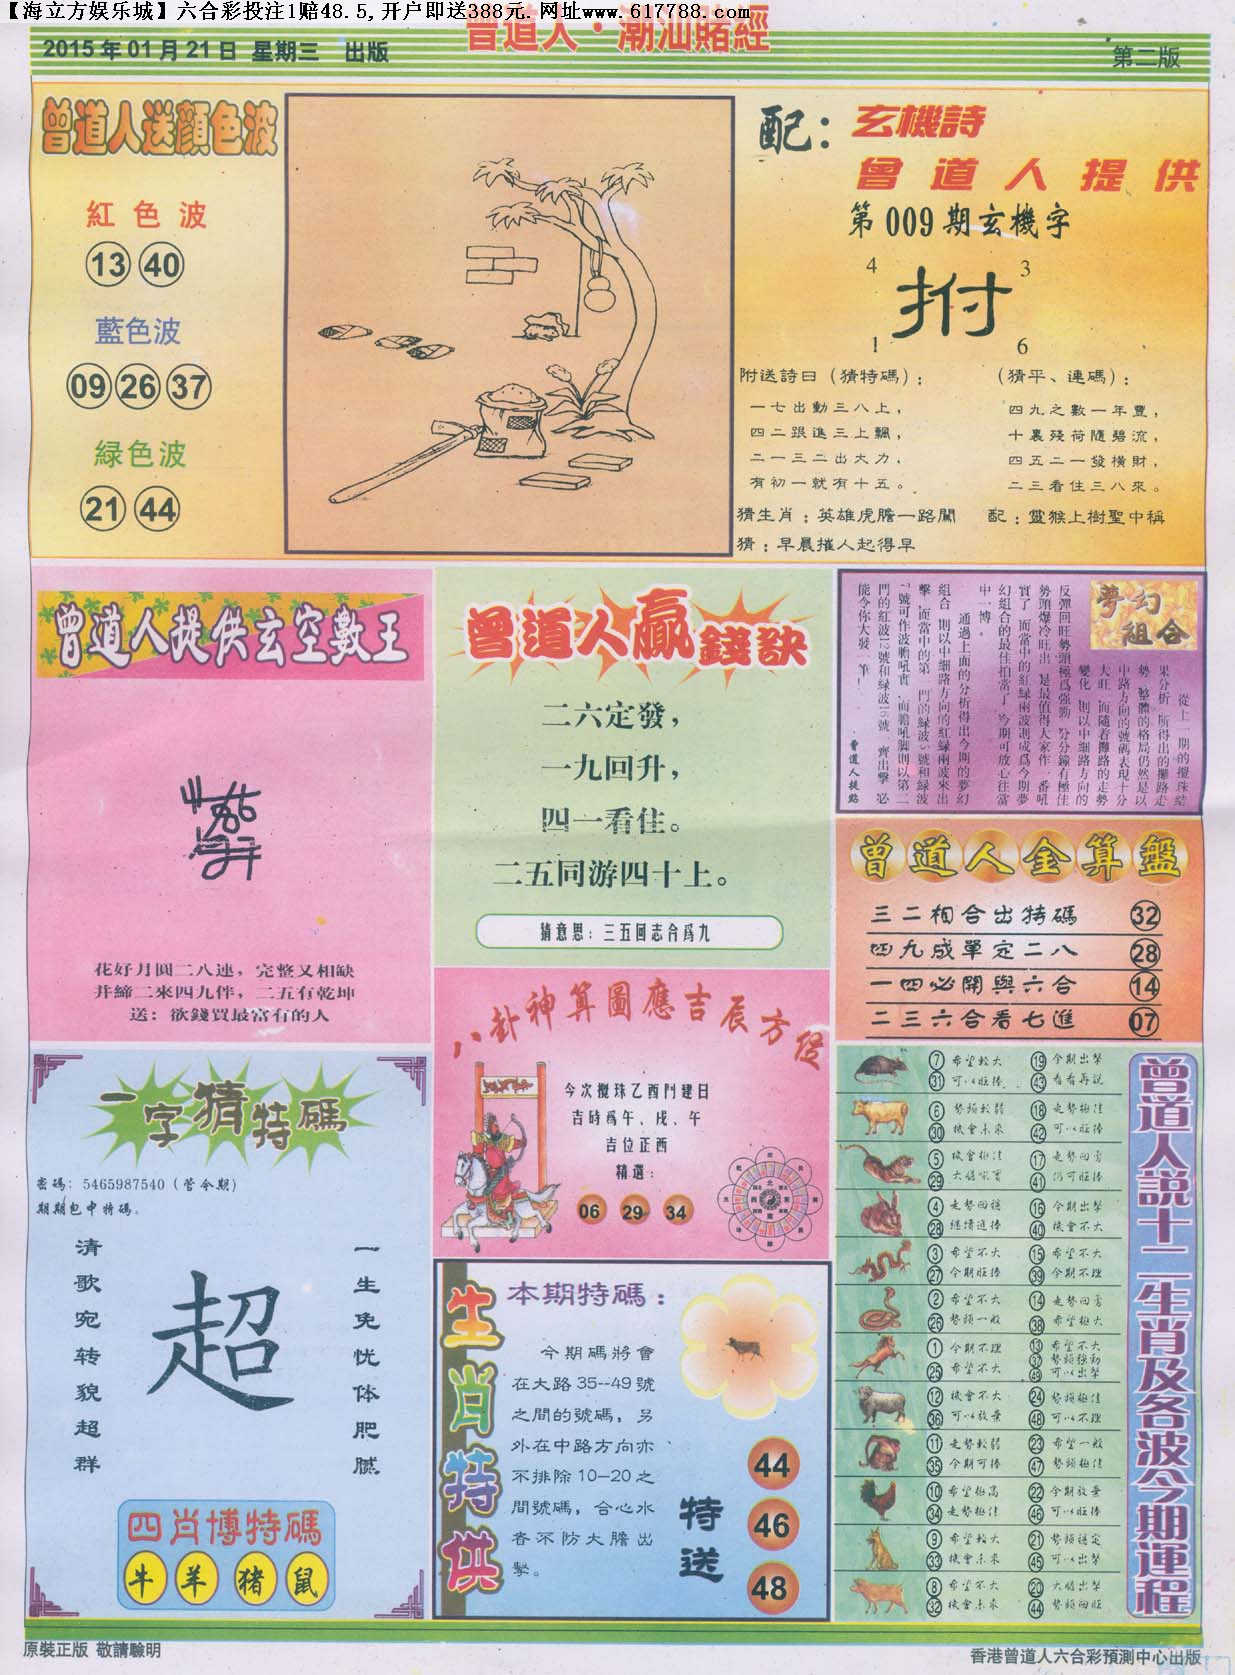 【海立方娱乐城】六合彩投注1赔48.5,开户即送388元.网址www.617788.com
曾道人·潮汕賭經
2015年01月21日 星期三 出版
第二版
曾道人送顔色波
紅色波
13 40
藍色波
09 26 37
緑色波
21 44
配:
玄機詩
曾道人提供
第009期玄機字
4 3
拊
1 6
附送詩曰(猜特碼):
一七出動三八上,
四二跟進三上飄,
二一三二出大力,
有初一就有十五。
(猜平、連碼):
四九之數一年豐,
十裏殘荷隨碧流,
四五二一發橫財,
二三看住三八來。
猜生肖:英雄虎膽一路闖
配:靈猴上樹聖中稱
猜:早晨摧人起得早
曾道人提供玄空數王
花好月圓二八連,完整又相缺
并締二來四九伴,二五有乾坤
送:欲錢買最富有的人
曾道人贏錢訣
二六定發,
一九回升,
四一看住。
二五同游四十上。
猜意思:三五同志合爲九
夢幻組合
從上一期的攪珠結
果分析,所得出的攤路走
勢,整體的格局仍然是以
中路方向的號碼表現十分
大旺,而隨着攤路的走勢
變化,則以中細路方向的
反彈回旺勢頭極爲強勁,分分鐘有極佳
勢頭爆冷旺出,是最值得大家作一番吼
實了,而當中的紅緑兩波則成爲今期夢
幻組合的最佳拍當了,今期可放心往當
中一博。
通過上面的分析得出今期的夢幻
組合,則以中細路方向的紅緑兩波來出
擊,而當中的第一門的緑波5號和緑波
門的紅波12號和緑波16號一齊出擊,必
能令你大發一筆!
曾道人提點
曾道人金算盤
三二相合出特碼 32
四九成單定二八 28
一四必開與六合 14
二三六合看七進 07
八卦神算圖應吉辰方位
今次攪珠乙酉門建日
吉時爲午、戌、午
吉位正西
精選:
06 29 34
一字猜特碼
密碼:5465987540(管今期)
期期包中特碼。
清歌宛转貌超群
超
一生免忧体肥腻
四肖博特碼
牛 羊 猪 鼠
生肖特供
本期特碼:
今期碼將會
在大路35--49號
之間的號碼,另
外在中路方向亦
不排除10—20之
間號碼,合心水
者不防大膽出
擊。
特送
44
46
48
曾道人説十二生肖及各波今期運程
7 希望較大 19 今期出擊
31 可以旺捧 43 看看再説
6 勢頭較弱 18 走勢極佳
30 機會未來 42 可以旺捧
5 機會極佳 17 走勢回勇
29 41 仍可旺捧
4 走勢回穩 16 今期出擊
28 繼續進捧 40 機會不大
3 希望不大 15 希望不大
27 今期旺捧 39 今期不理
2 希望不大 14 走勢回勇
26 勢頭一般 38 希望極大
1 今期不理 13 希望不大
25 希望不大 37 勢頭強勁
49 可以出擊
12 機會不大 24 勢頭極佳
36 可以放棄 48 可以不理
11 走勢較弱 23 希望一般
35 今期可捧 47 勢頭極佳
10 希望極高 22 今期放棄
34 走勢極佳 46 可以旺捧
9 希望較大 21 勢頭穩定
33 機會未來 45 可以出擊
8 希望不大 20 大膽出擊
32 機會未來 44 勢頭回旺
原裝正版 敬請驗明
香港曾道人六合彩預測中心出版